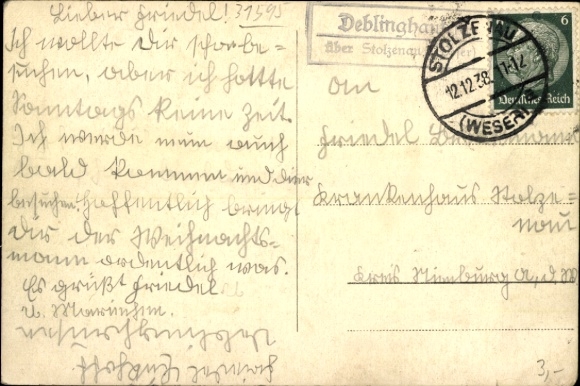 Lieber Friedel! 31595
Ich wollte Dir schon be=
suchen, aber ich hatte
Sonntags keine Zeit.
Ich werde nun auch
bald kommen und dir
besuchen. Hoffentlich bringt
Dir der Weihnachts-
mann ordentlich was.
Es grüßt Friedel
u. Mariechen.
Deblinghau
über Stolzenau
STOLZENAU
12.12.38
(WESER)
6
Deutsches Reich
An
Friedel
Krankenhaus Stolze=
nau
Kreis Nienburg a. d. W.
3,-